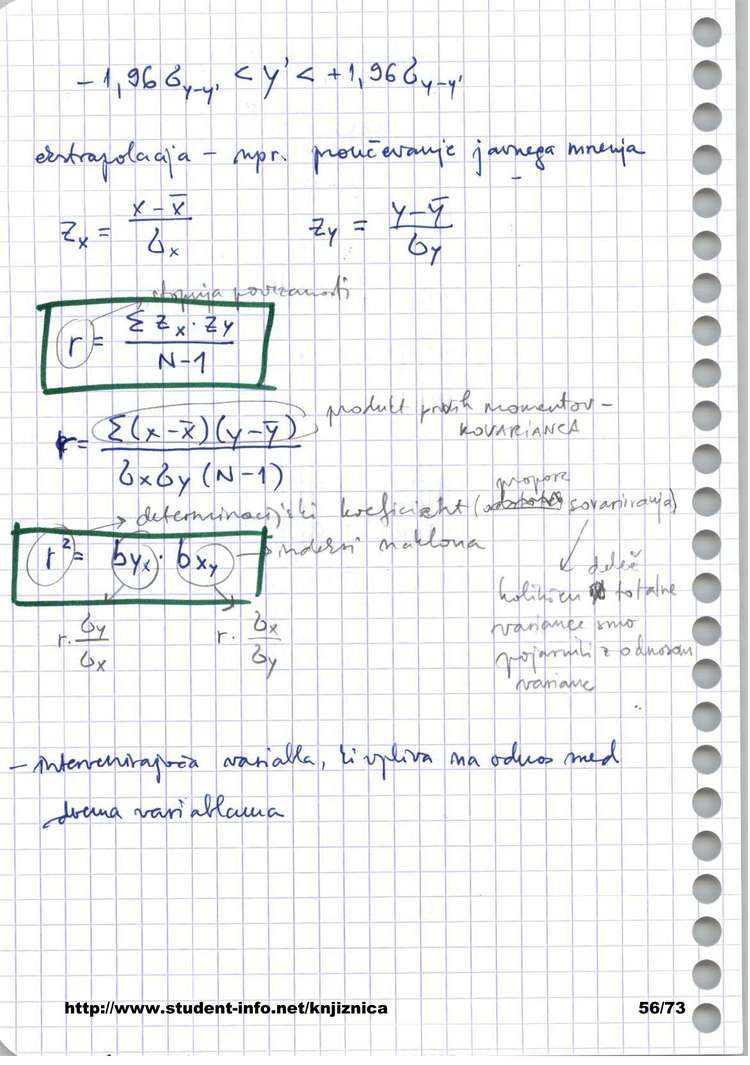 -1,96 σy-y' < y' < +1,96 σy-y'
ekstrapolacija - npr. proučevanje javnega mnenja
zx = (x - x̄) / σx    zy = (y - ȳ) / σy
stopnja povezanosti
r = Σ zx · zy / (N-1)
produkt prvih momentov -
KOVARIANCA
r = Σ(x - x̄)(y - ȳ) / σx σy (N-1)
propor
→ determinacijski koeficient (sovariiranja)
r² = byx · bxy → indeksi naklona
r · σy / σx    r · σx / σy
delež
kolikšen totalne
variance smo
pojasnili z odnosom
varianc
- intervenirajoča variabla, ki vpliva na odnos med
dvema variablama
http://www.student-info.net/knjiznica    56/73